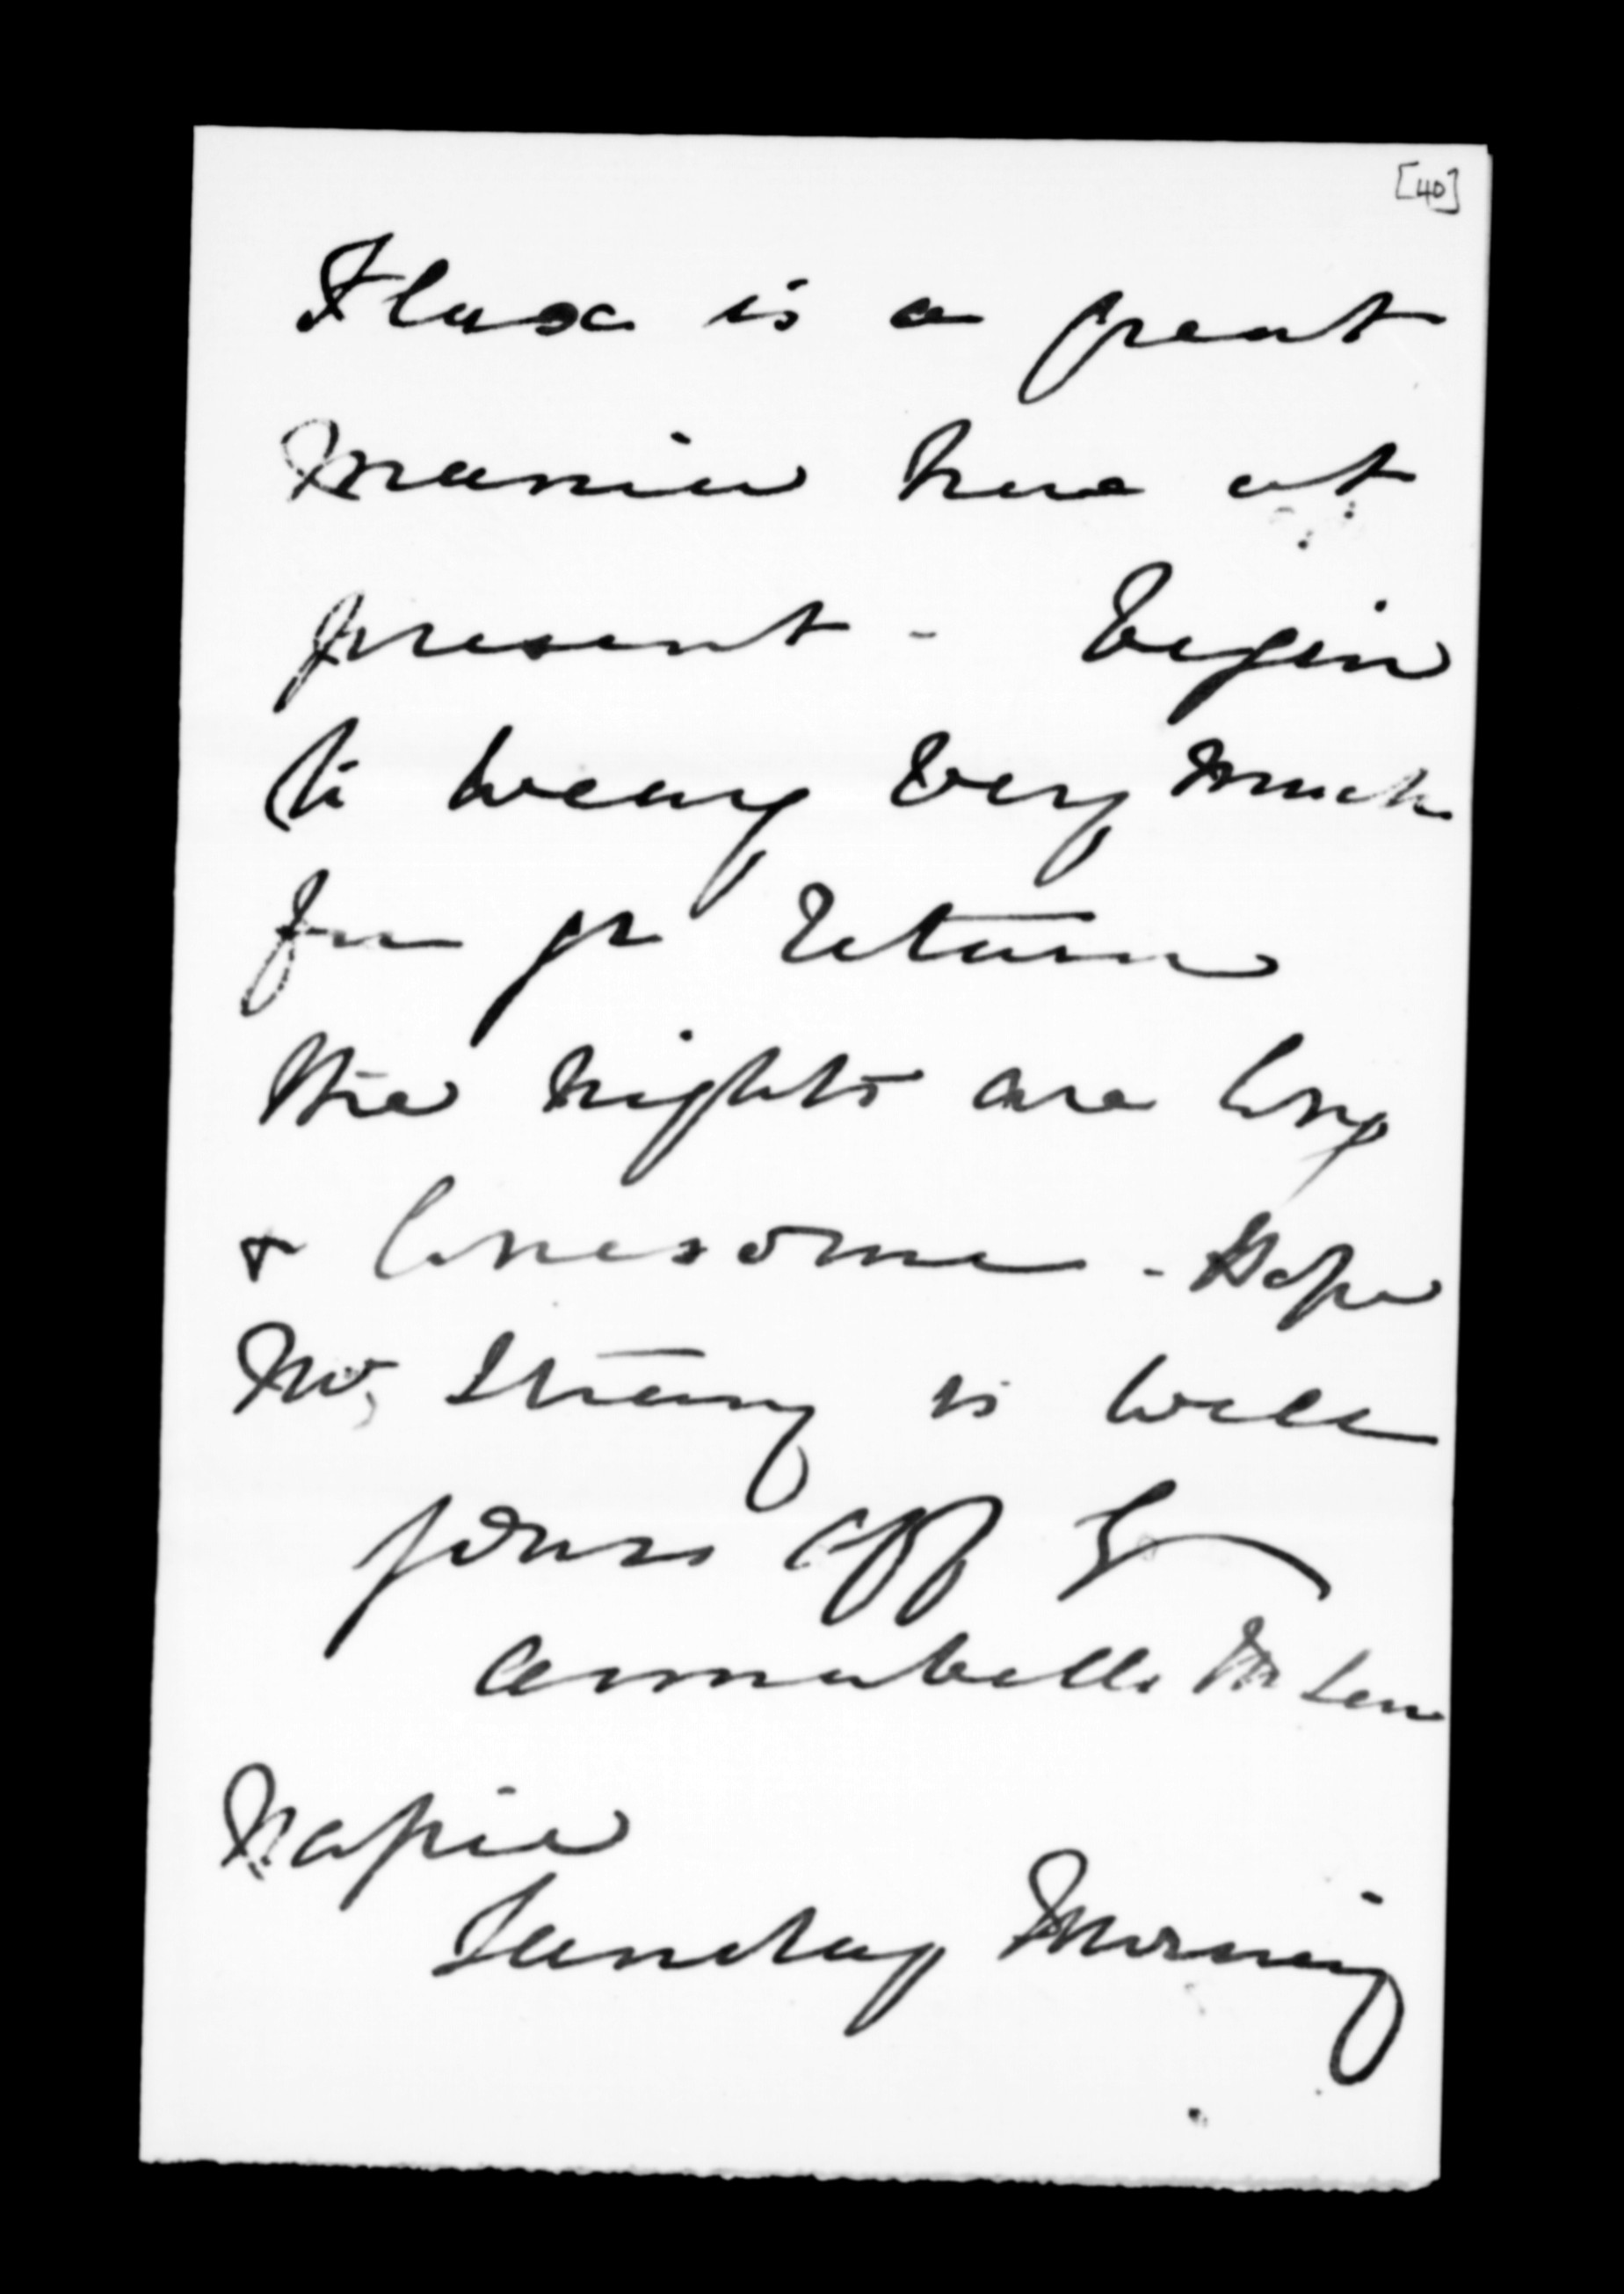 [40]
Flax is a great
mania here at
present - begin
to weary very much
for yr return
the nights are long
& lonesome - Hope
Mr, Strang is well
yours aff ly
Annabella McLean
Napier
Sunday Morning